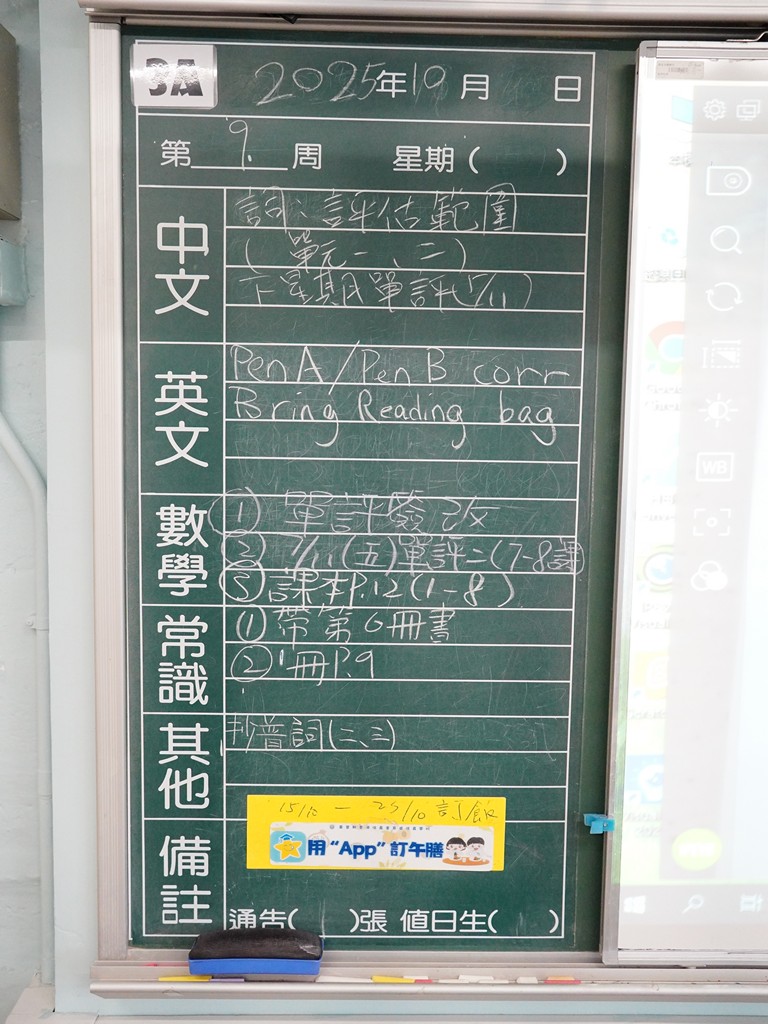 3A
2025年10月 日
第9周 星期( )
中文
詞:評估範圍
(單元一、二)
下星期單評(5/11)
英文
Pen A/Pen B corr
Bring Reading bag
數學
① 單評簽改
② 7/11(五)單評二(7-8課)
③ 課本P.12(1-8)
常識
① 帶第6冊書
② 1冊P.9
其他
抄普詞(二、三)
15/10 - 29/10 訂飯
用"App"訂午膳
備註
通告( )張 值日生( )
WB